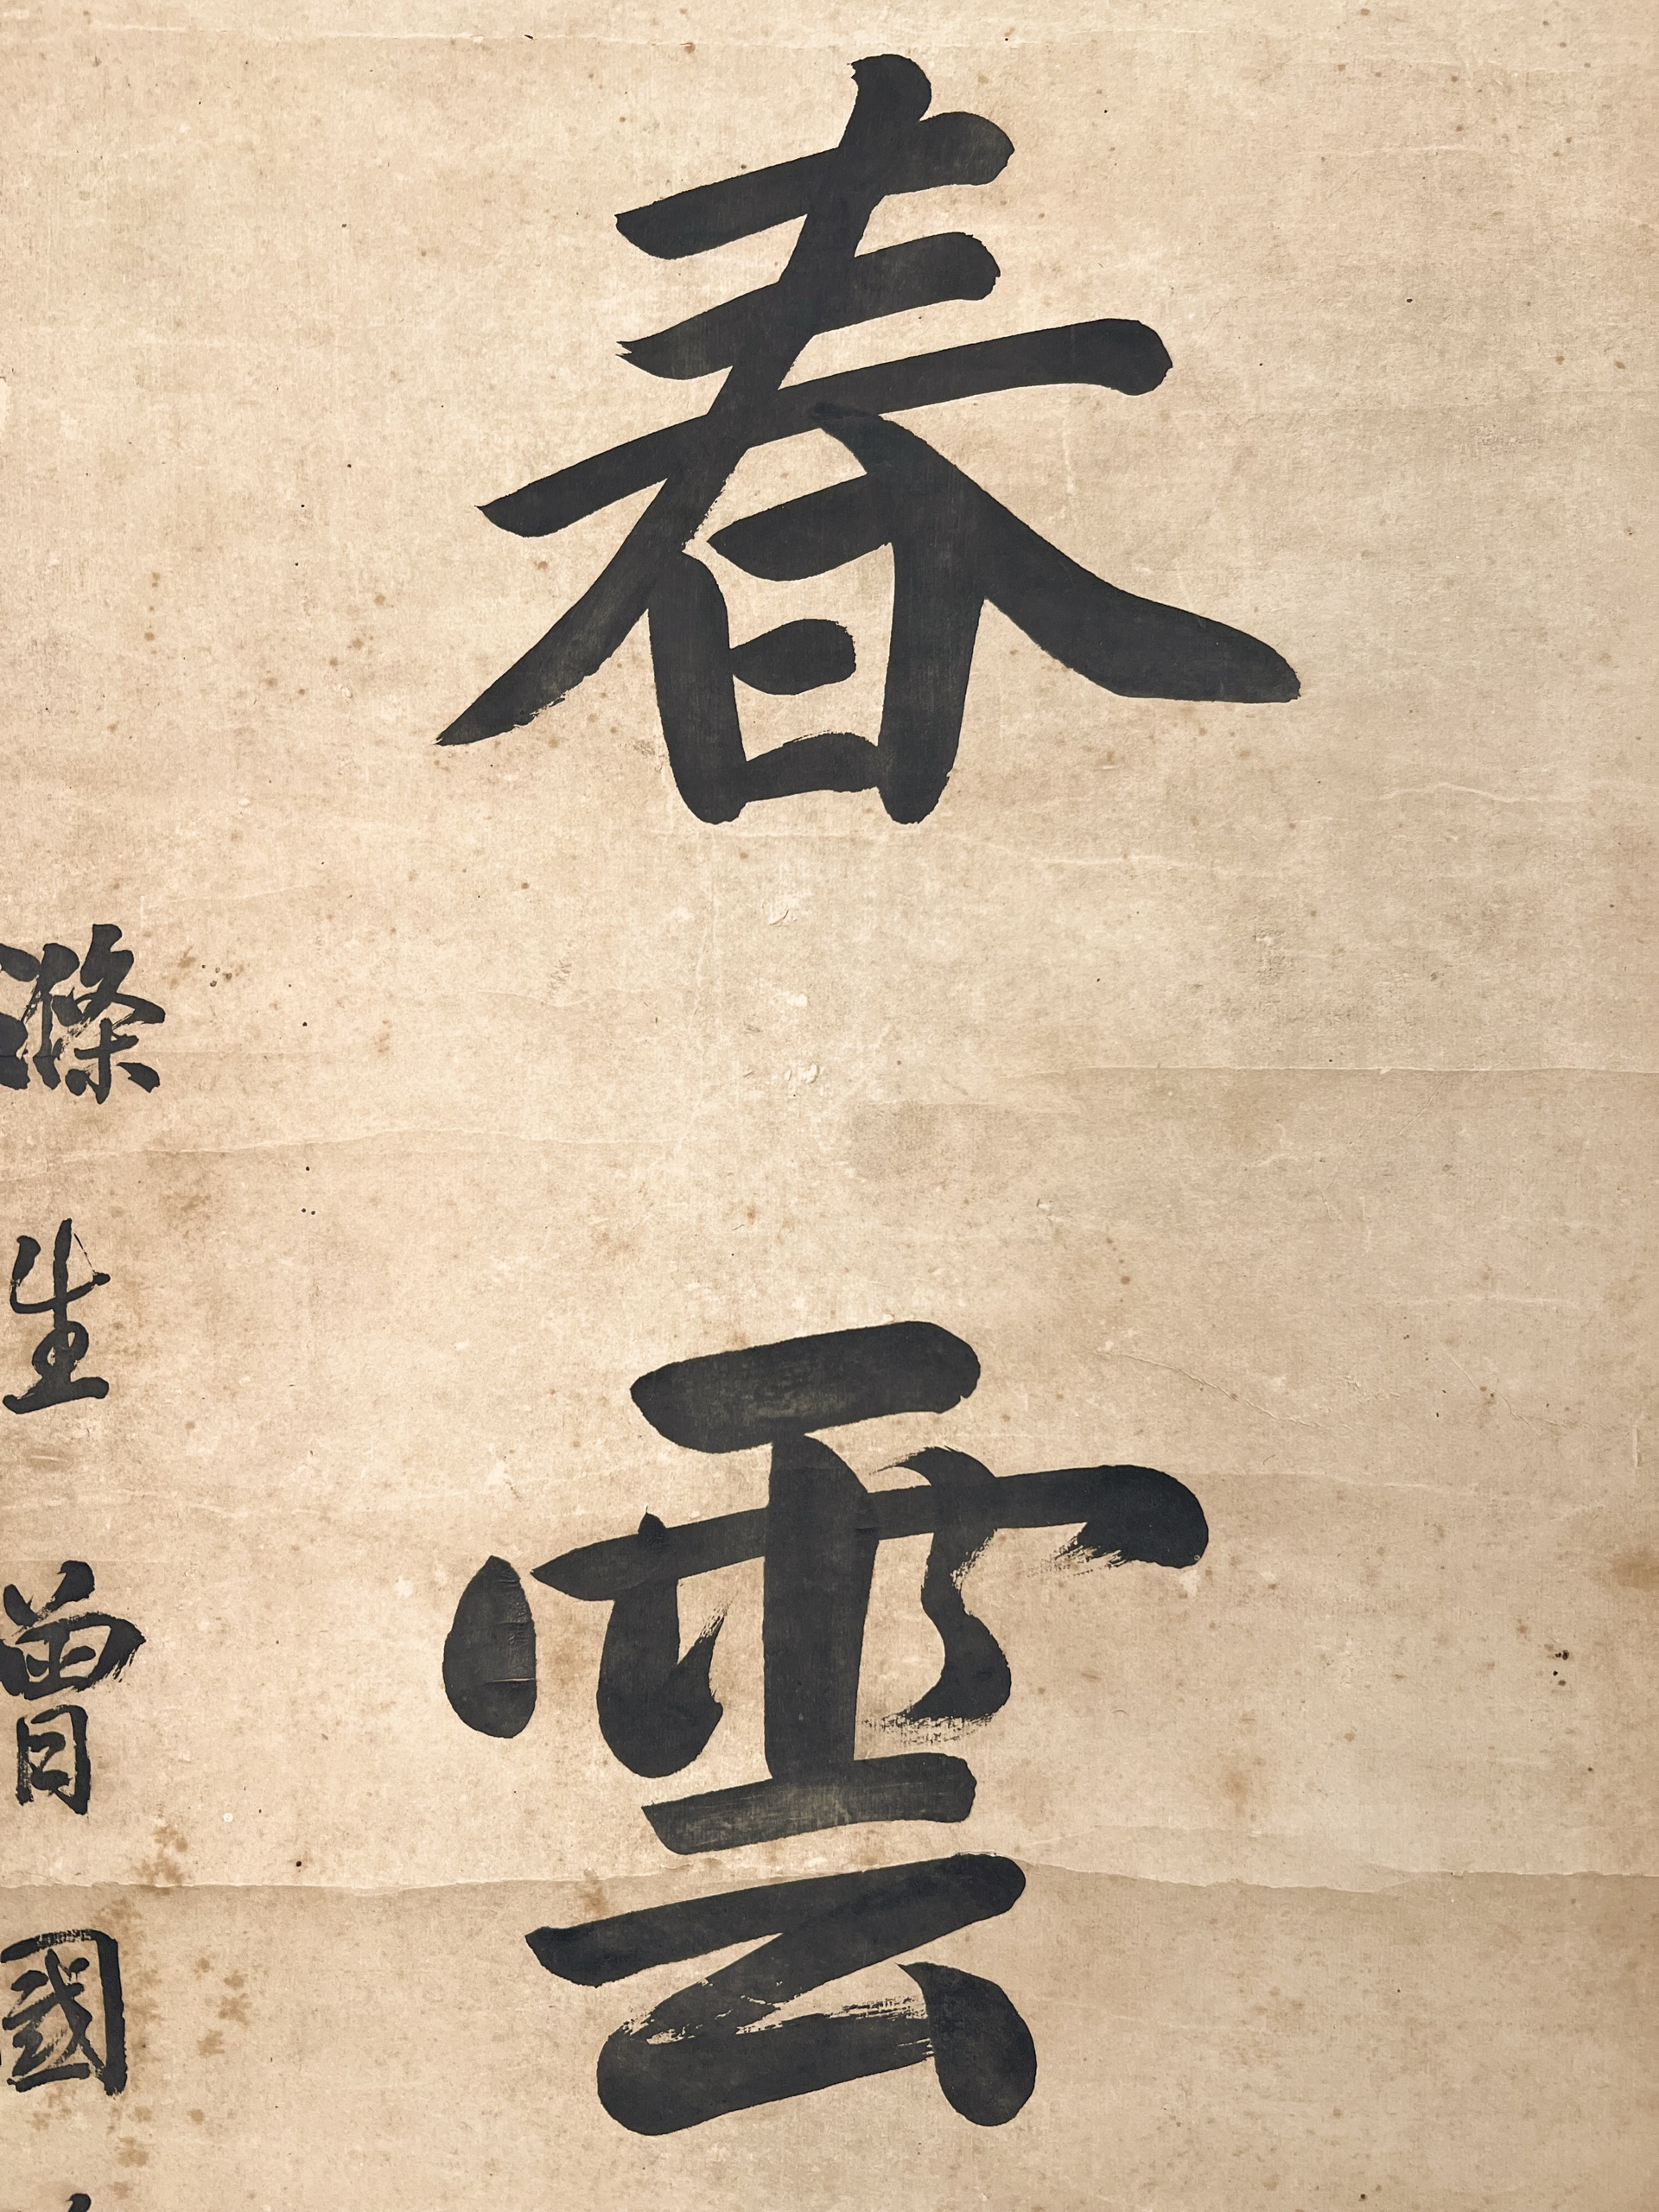 春雲
滌生曾國